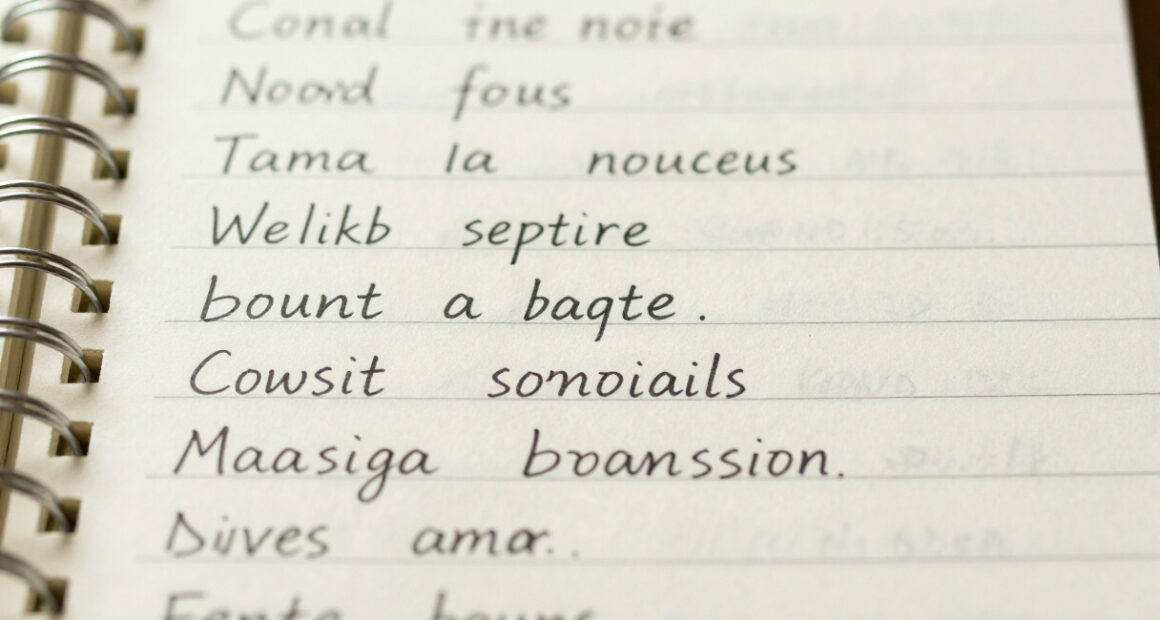 Conal ine noie
Noord fous
Tama la nouceus
Welikb septire
bount a baqte.
Cowsit somoiails
Maasiga boanssion.
Diives amar..